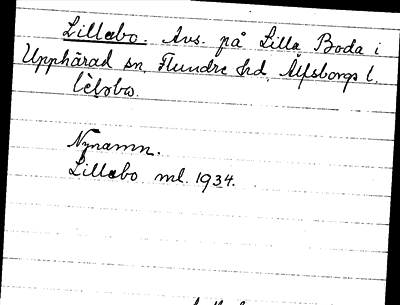 Lillebo. Avs. på Lilla Boda i
Upphärad sn, Flundre hd, Älfsborgs l.
Nynamn.
Lillebo ml. 1934.